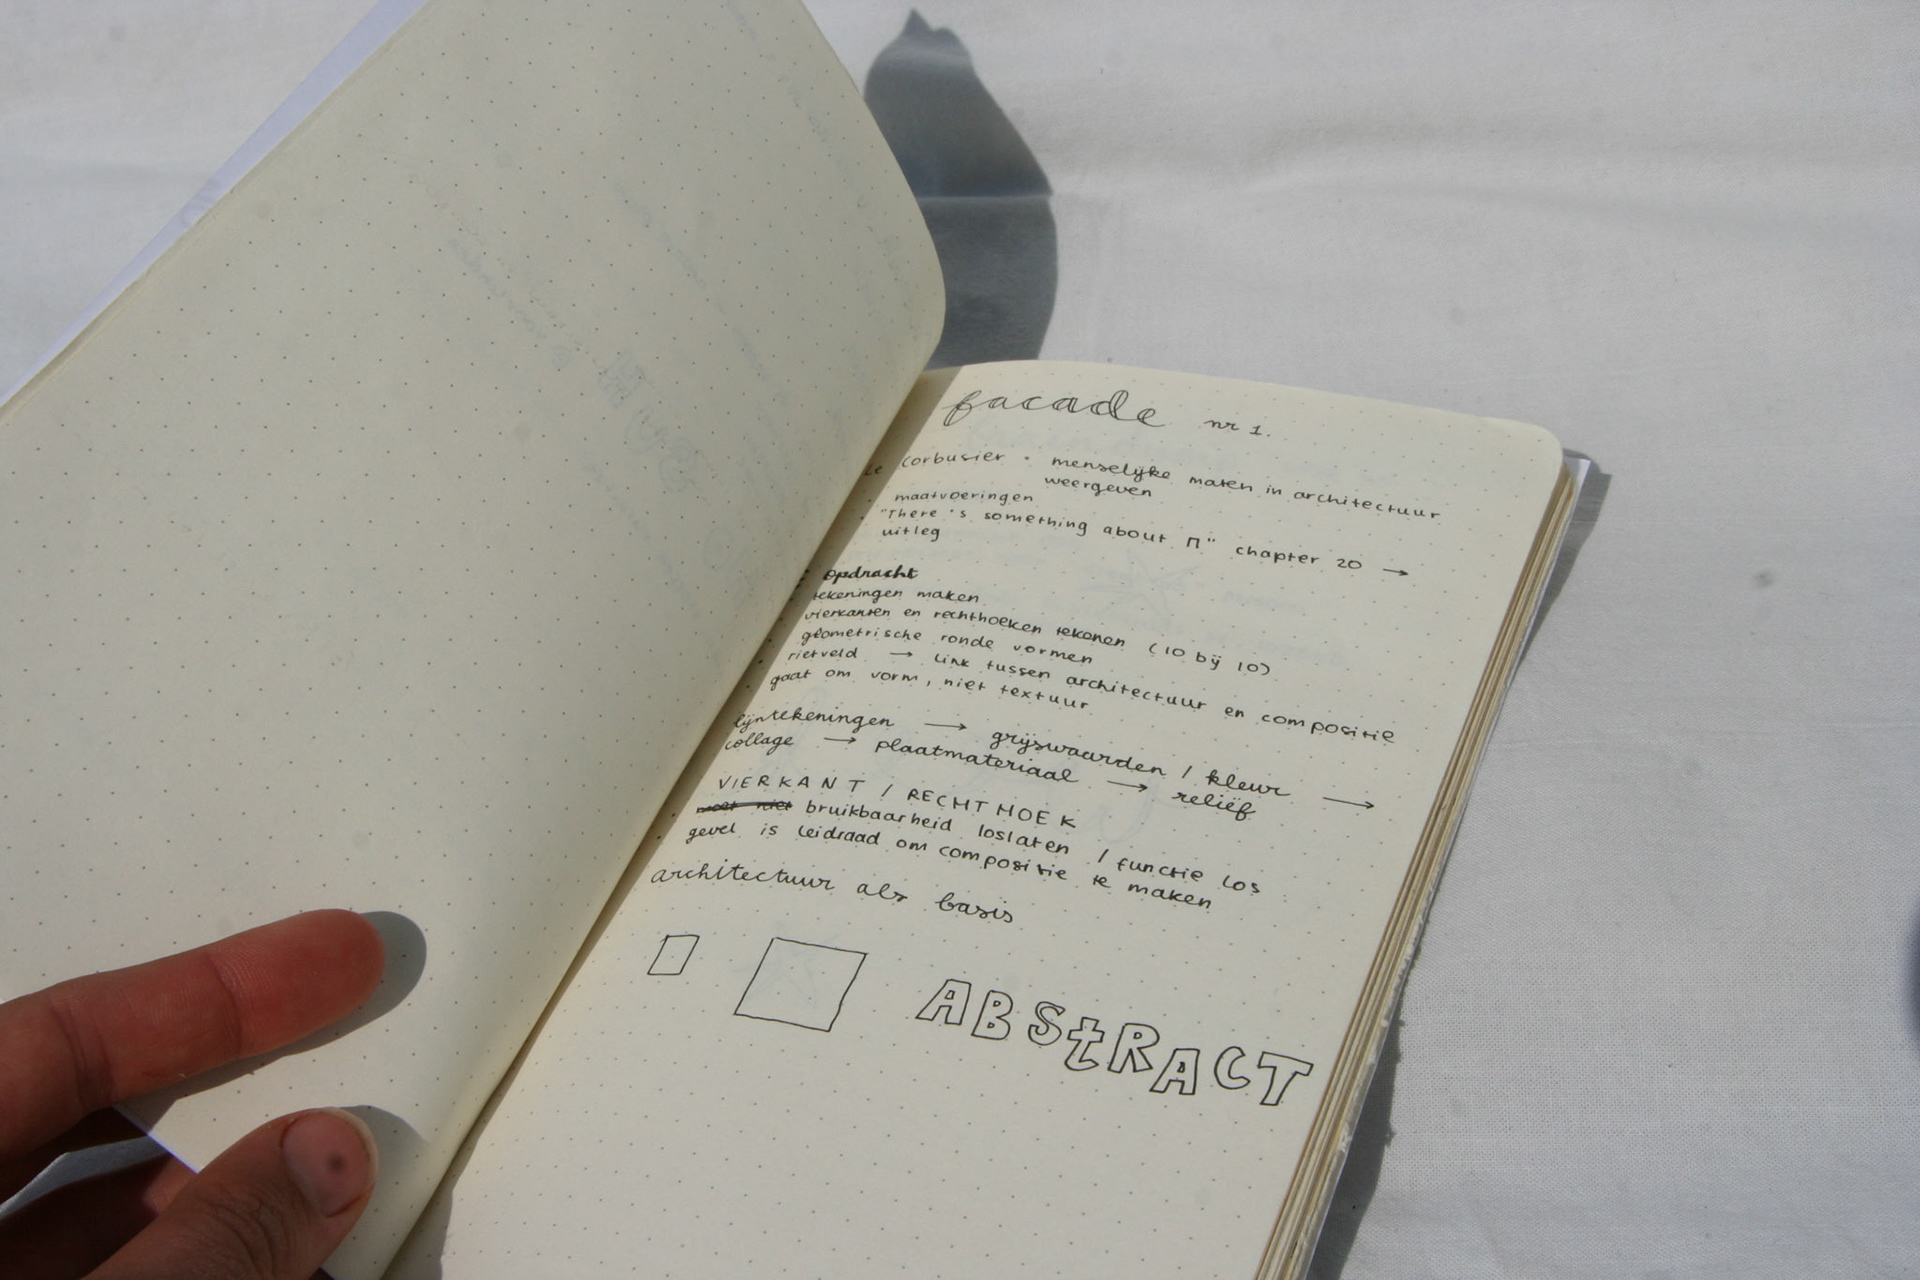 facade nr 1.
Le Corbusier • menselijke maten in architectuur
weergeven
maatvoeringen
"There's something about Π" chapter 20 →
uitleg
opdracht
tekeningen maken
vierkanten en rechthoeken tekenen (10 bij 10)
geometrische ronde vormen
rietveld → link tussen architectuur en compositie
gaat om vorm, niet textuur
lijntekeningen → grijswaarden / kleur →
collage → plaatmateriaal → reliëf
VIERKANT / RECHTHOEK
moet niet bruikbaarheid loslaten / functie los
gevel is leidraad om compositie te maken
architectuur als basis
ABStRACT